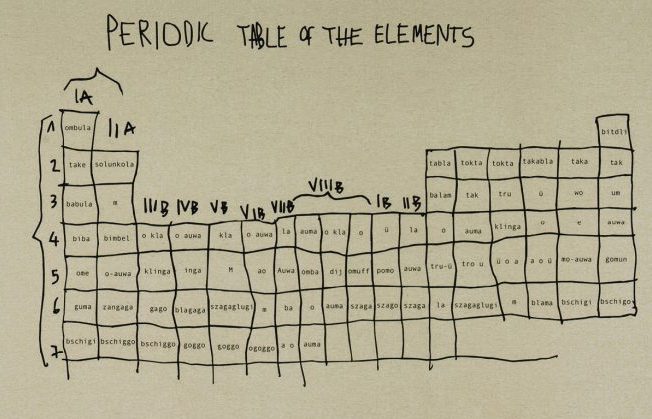 PERIODIC TABLE OF THE ELEMENTS
IA
1 ombula IIA bitdli
2 take solunkola tabla tokta tokta takabla taka tak
3 babula m IIIB IVB VB VIB VIIB VIIIB IB IIB balam tak tru ü wo um
4 biba bimbel o kla o auwa kla o auwa la auma o kla o ü la o auma klinga o e auwa
5 ome o-auwa klinga inga M ao Auwa omba dij omuff pomo auwa tru-ü tro u ü o a a o ü mo-auwa gomun
6 guma zangaga gago blagaga szagaglugi m ba o auma szaga szago szaga la szagaglugi m blama bschigi bschigo
7 bschigi bschiggo bschiggo goggo goggo ogoggo a o auma